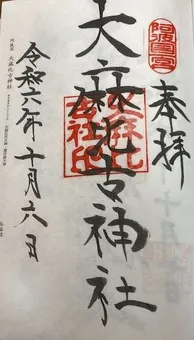 奉拝
阿波國一宮
大麻比古神社
令和六年十月六日
阿波国 大麻比古神社